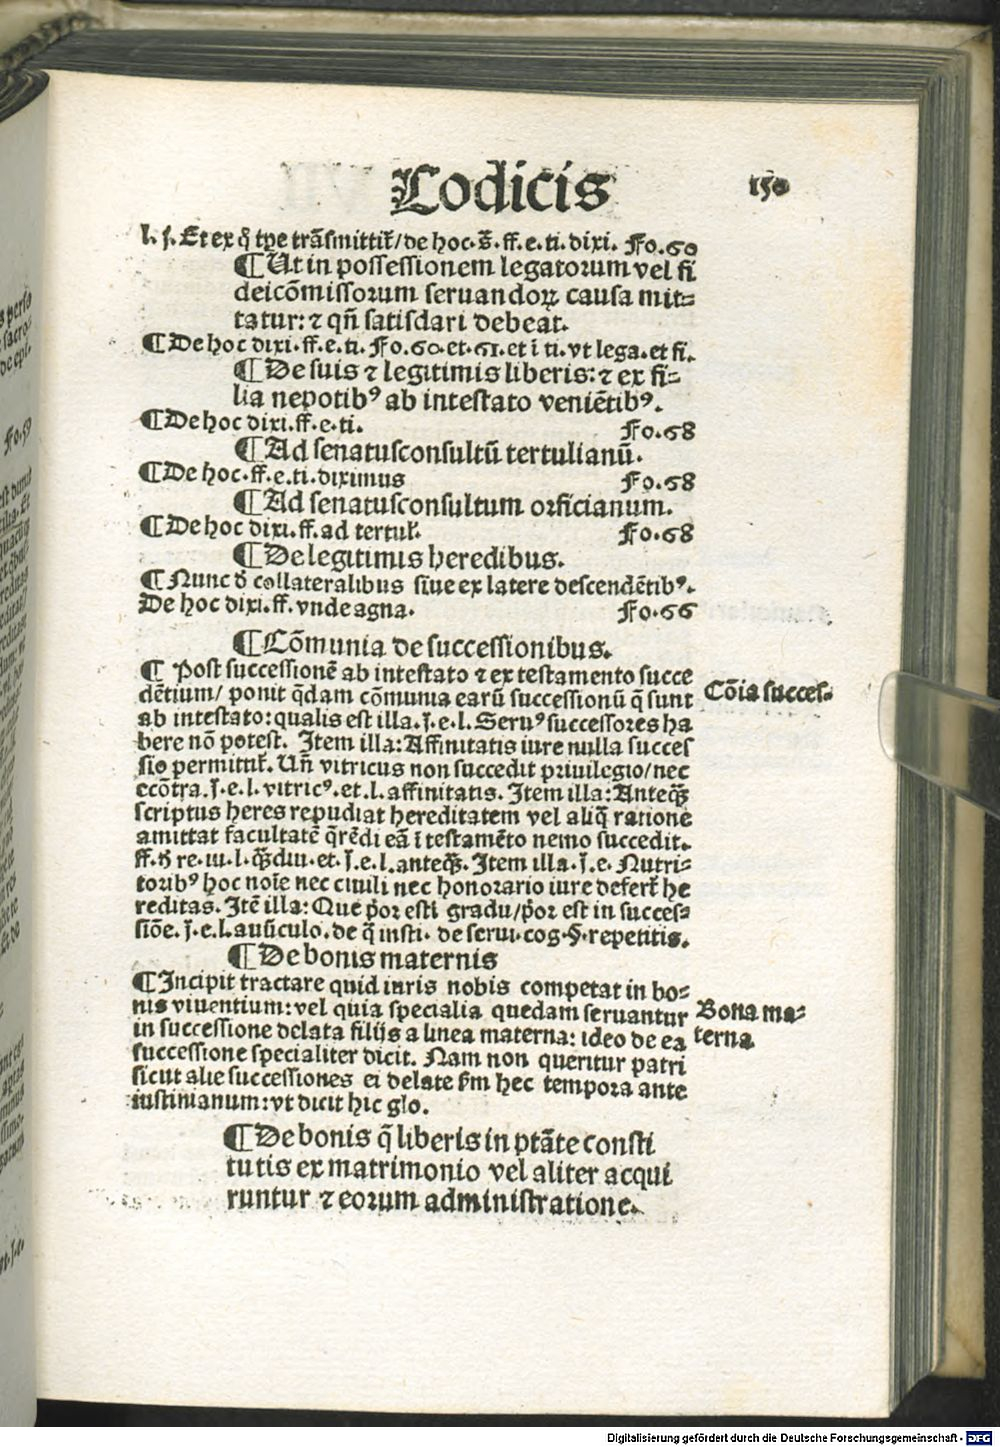 Codicis 150
l. j. Et ex q̄ tp̄e trāsmittit̄/de hoc. s̄. ff. e. ti. dixi. Fo.60
¶ Ut in possessionem legatorum vel fi
deicōmissorum seruandoꝝ causa mit⸗
tatur: ⁊ qñ satisdari debeat.
¶ De hoc dixi. ff. e. ti. Fo.60. et .61. et ī ti. vt lega. et fi.
¶ De suis ⁊ legitimis liberis: ⁊ ex fi⸗
lia nepotibꝰ ab intestato veniētibꝰ.
¶ De hoc dixi. ff. e. ti. Fo.68
¶ Ad senatusconsultū tertulianū.
¶ De hoc. ff. e. ti. diximus Fo.68
¶ Ad senatusconsultum orficianum.
¶ De hoc dixi. ff. ad tertul̄. Fo.68
¶ De legitimis heredibus.
¶ Nunc d̄ collateralibus siue ex latere descendētibꝰ.
De hoc dixi. ff. vnde agna. Fo.66
¶ Cōmunia de successionibus.
¶ Post successionē ab intestato ⁊ ex testamento succe
dētium/ ponit q̄dam cōmunia earū successionū q̄ sunt
Cōia succes⸗
ab intestato: qualis est illa. j. e. l. Seruꝰ successores ha
bere nō potest. Item illa: Affinitatis iure nulla succes
sio permittit̄. Uñ vitricus non succedit priuilegio/nec
ecōtra. j. e. l. vitricꝰ. et. l. affinitatis. Item illa: Anteq̄ꝫ
scriptus heres repudiat hereditatem vel aliq̄ ratione
amittat facultatē q̄rēdi eā ī testamēto nemo succedit.
ff. d̄ re. iu. l. q̄ꝫdiu. et. j. e. l. anteq̄ꝫ. Item illa. j. e. Nutri⸗
toribꝰ hoc noīe nec ciuili nec honorario iure defert̄ he
reditas. Itē illa: Que p̄or est ī gradu/p̄or est in succes⸗
siōe. j. e. l. auūculo. de q̄ insti. de serui. cog. §. repetitis.
¶ De bonis maternis
¶ Incipit tractare quid iuris nobis competat in bo⸗
nis viuentium: vel quia specialia quedam seruantur
Bona ma⸗
terna
in successione delata filijs a linea materna: ideo de ea
successione specialiter dicit. Nam non queritur patri
sicut alie successiones ei delate s̄m hec tempora ante
iustinianum: vt dicit hic glo.
¶ De bonis q̄ liberis in p̄tāte consti
tutis ex matrimonio vel aliter acqui
runtur ⁊ eorum administratione.
Digitalisierung gefördert durch die Deutsche Forschungsgemeinschaft - DFG